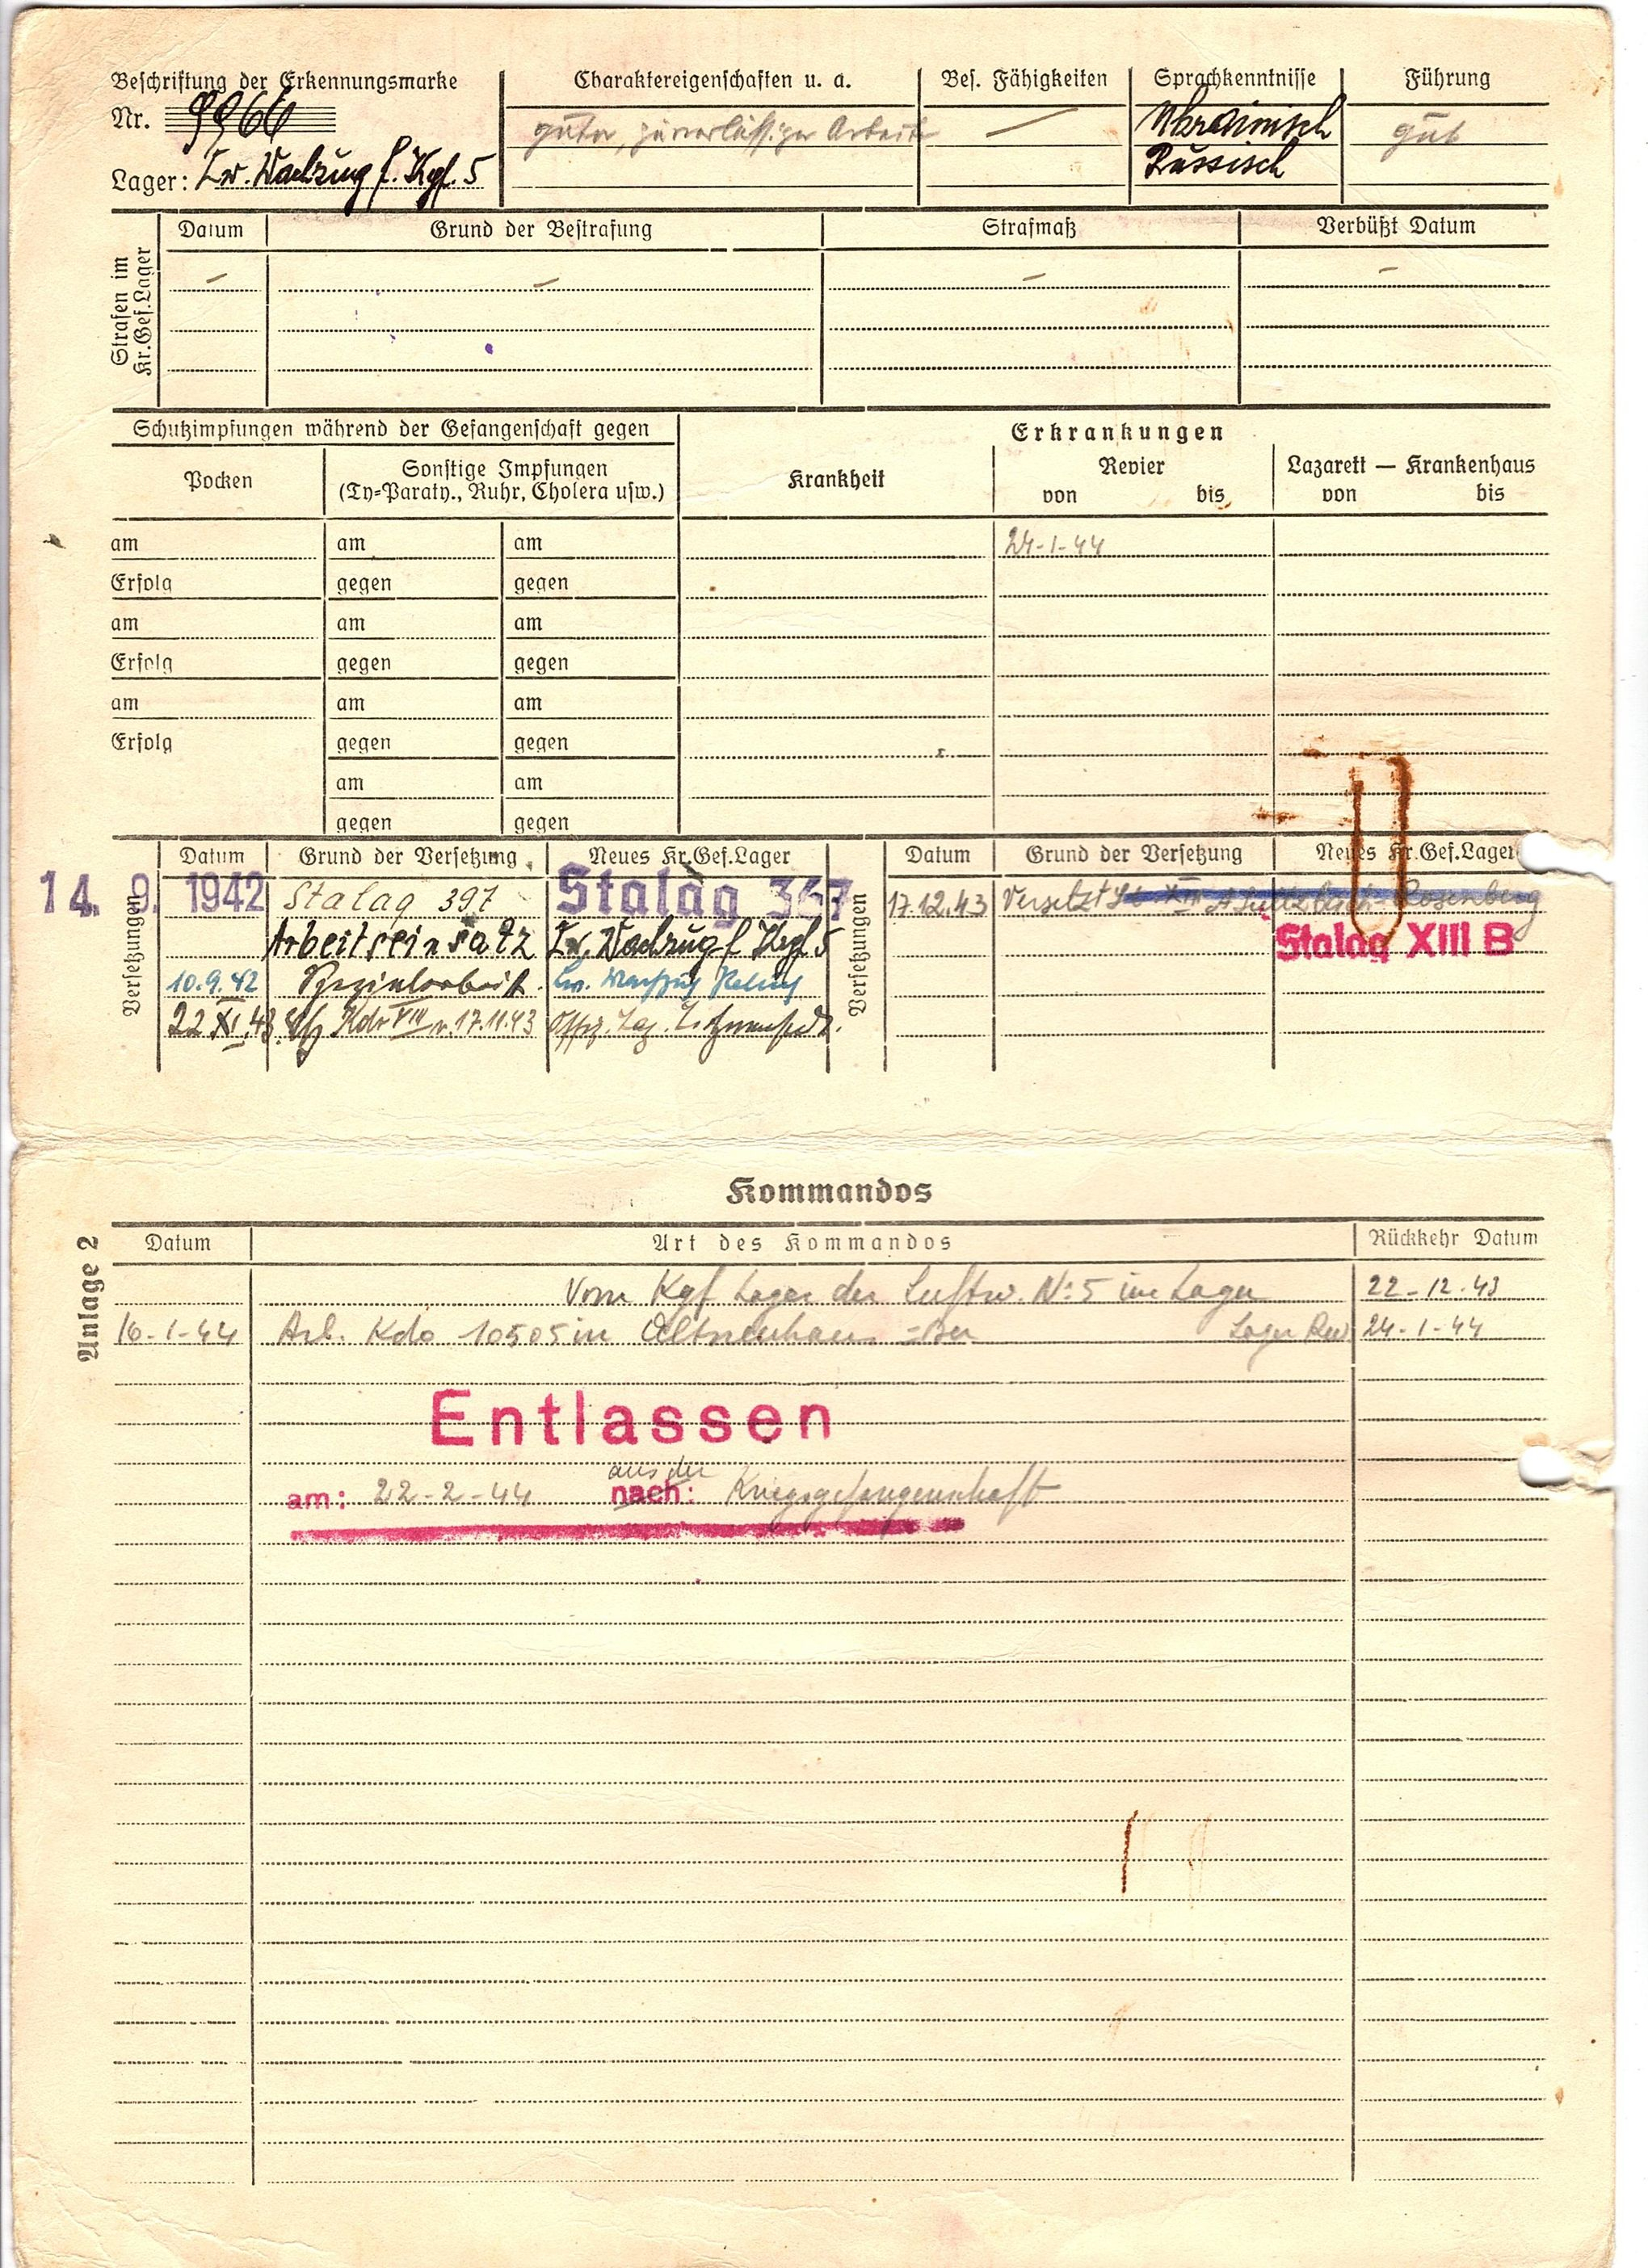 Beschriftung der Erkennungsmarke
Nr. 9966
Lager: Lw. Wachzug f. Kgf. 5
Charaktereigenschaften u. a.
guter, zuverlässiger Arbeiter
Bes. Fähigkeiten
—
Sprachkenntnisse
Ukrainisch
Russisch
Führung
gut
Strafen im
Kr.Gef.Lager
Datum Grund der Bestrafung Strafmaß Verbüßt Datum
– – – –
Schutzimpfungen während der Gefangenschaft gegen
Pocken
Sonstige Impfungen
(Ty=Paraty., Ruhr, Cholera usw.)
Erkrankungen
Krankheit
Revier
von bis
Lazarett — Krankenhaus
von bis
am am am 24-1-44
Erfolg gegen gegen
am am am
Erfolg gegen gegen
am am am
Erfolg gegen gegen
am am
gegen gegen
Versetzungen
Datum Grund der Versetzung Neues Kr.Gef.Lager
14. 9. 1942 Stalag 397 Stalag 367
Arbeitseinsatz Lw. Wachzug f Kgf 5
10.9.42 Spezialarbeit. Lw.
22.XI.43 Kdr VIII v. 17.11.43 Offz. Lag.
Versetzungen
Datum Grund der Versetzung Neues Kr.Gef.Lager
17.12.43 Versetzt St XIII A Sulzbach-Rosenberg
Stalag XIII B
Kommandos
Anlage 2
Datum Art des Kommandos Rückkehr Datum
Vom Kgf Lager der Luftw. N: 5 im Lager 22-12-43
16-1-44 Arb. Kdo 10505 in Lager Rev. 24-1-44
Entlassen
aus der
am: 22-2-44 nach: Kriegsgefangenschaft